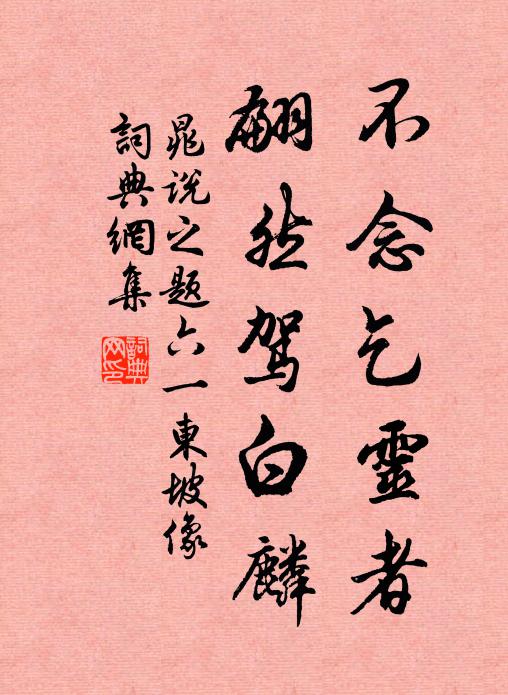 不念乞靈者
翩然駕白麟
晁說之題六一東坡像
詞典網集
詞典網印